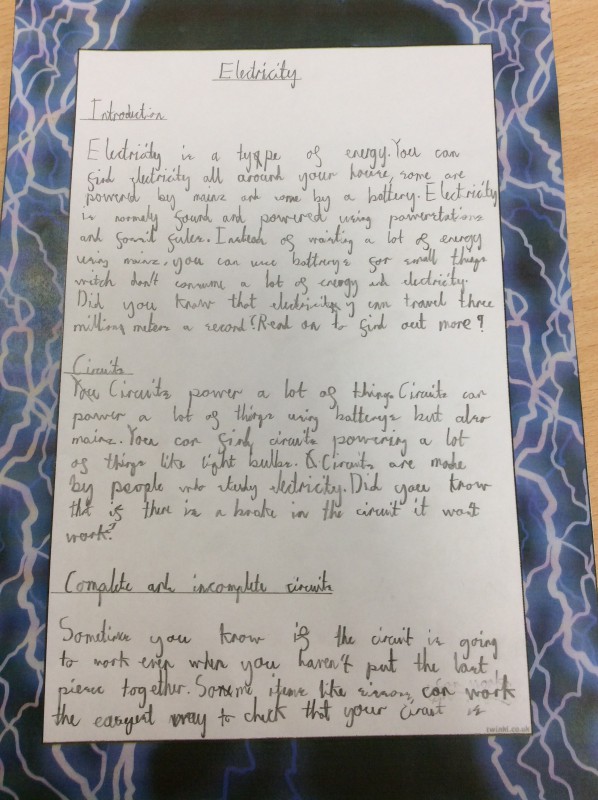 Electricity
Introduction
Electricity is a type of energy. You can
find electricity all around your house, some are
powered by mains and some by a battery. Electricity
is normely found and powered using powerstations
and fossil fules. Instead of wasting a lot of energy
using mains, you can use batterys for small things
witch don't consume a lot of energy and electricity.
Did you know that electricity can travel three
million meters a second? Read on to find out more?
Circuits
Circuits power a lot of things Circuits can
power a lot of things using batterys but also
mains. You can find circuits powering a lot
of things like light bulbs. Circuits are made
by people who study electricity. Did you know
that if there is a brake in the circuit it wont
work?
Complete and incomplete circuits
Sometimes you know if the circuit is going
to work even when you haven't put the last
piece together. Some items like can work
the easyest way to check that your circut is
twinkl.co.uk